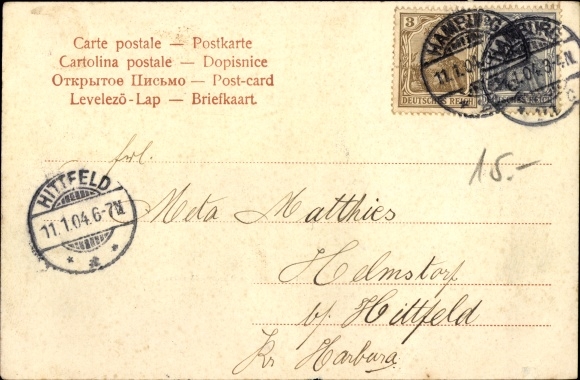 Carte postale — Postkarte
Cartolina postale — Dopisnice
Открытое Письмо — Post-card
Levelező-Lap — Briefkaart.
3
DEUTSCHES REICH
HAMBURG
11.1.04
HAMBURG
1.04.9-4.N
15.-
frl.
HITTFELD
11.1.04.6-7N
Meta Matthies
Helmstorf
bf. Hittfeld
Kr Harburg.